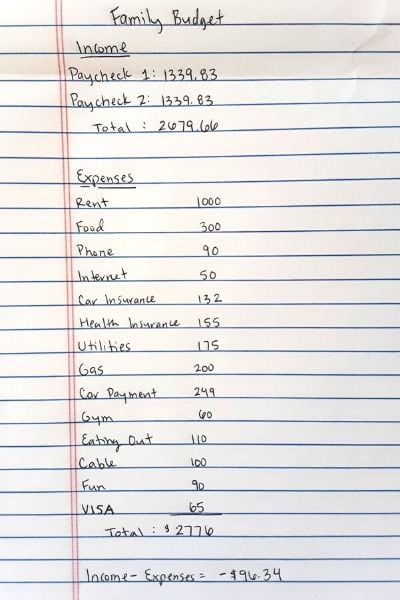 Family Budget
Income
Paycheck 1: 1339.83
Paycheck 2: 1339.83
Total : 2679.66
Expenses
Rent 1000
Food 300
Phone 90
Internet 50
Car Insurance 132
Health Insurance 155
Utilities 175
Gas 200
Car Payment 249
Gym 60
Eating Out 110
Cable 100
Fun 90
VISA 65
Total : $2776
Income - Expenses = -$96.34